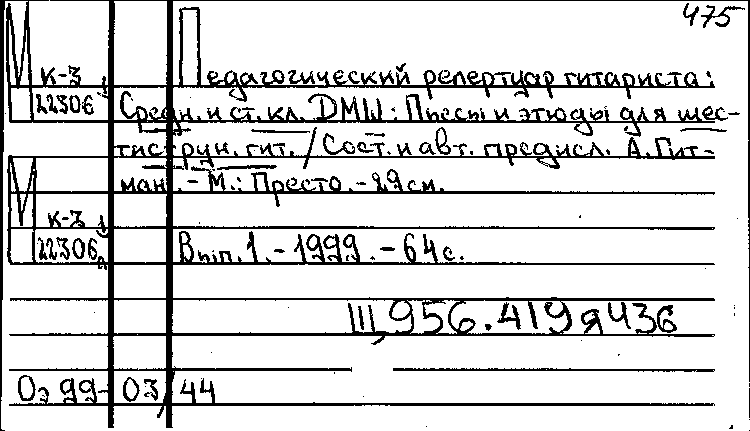 475
Педагогический репертуар гитариста:
М К-3
22306 1
Средн. и ст. кл. ДМШ: Пьесы и этюды для шес-
тиструн. гит. / Сост. и авт. предисл. А. Гит-
ман. - М.: Престо. - 29 см.
М К-3
22306 1
Вып. 1. - 1999. - 64 с.
Щ956.419я436
Оэ 99-03/44